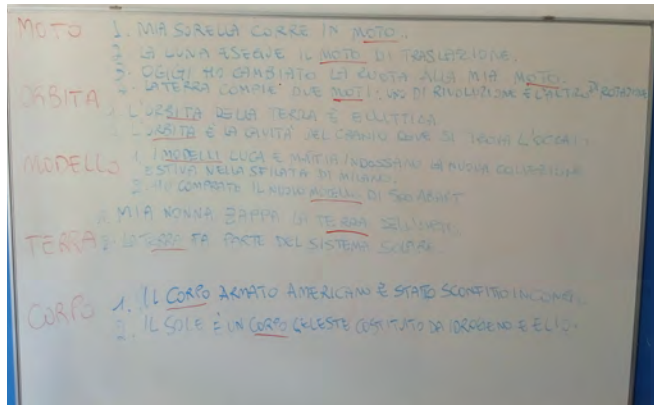 MOTO 1. MIA SORELLA CORRE IN MOTO.
2. LA LUNA ESEGUE IL MOTO DI TRASLAZIONE.
3. OGGI HO CAMBIATO LA RUOTA ALLA MIA MOTO.
4. LA TERRA COMPIE DUE MOTI: UNO DI RIVOLUZIONE E L'ALTRO DI ROTAZIONE
ORBITA 1. L'ORBITA DELLA TERRA È ELLITTICA
ORBITA È LA CAVITÀ DEL CRANIO DOVE SI TROVA
MODELLO 1. I MODELLI LUCA E MATTIA INDOSSANO LA NUOVA COLLEZIONE
ESTIVA NELLA SFILATA DI MILANO.
2. HO COMPRATO IL NUOVO MODELLO DI 500 ABART
MIA NONNA ZAPPA LA TERRA
TERRA 2. LA TERRA FA PARTE DEL SISTEMA SOLARE
CORPO 1. IL CORPO ARMATO AMERICANO È STATO SCONFITTO IN
2. IL SOLE È UN CORPO CELESTE COSTITUITO DA IDROGENO E ELIO.